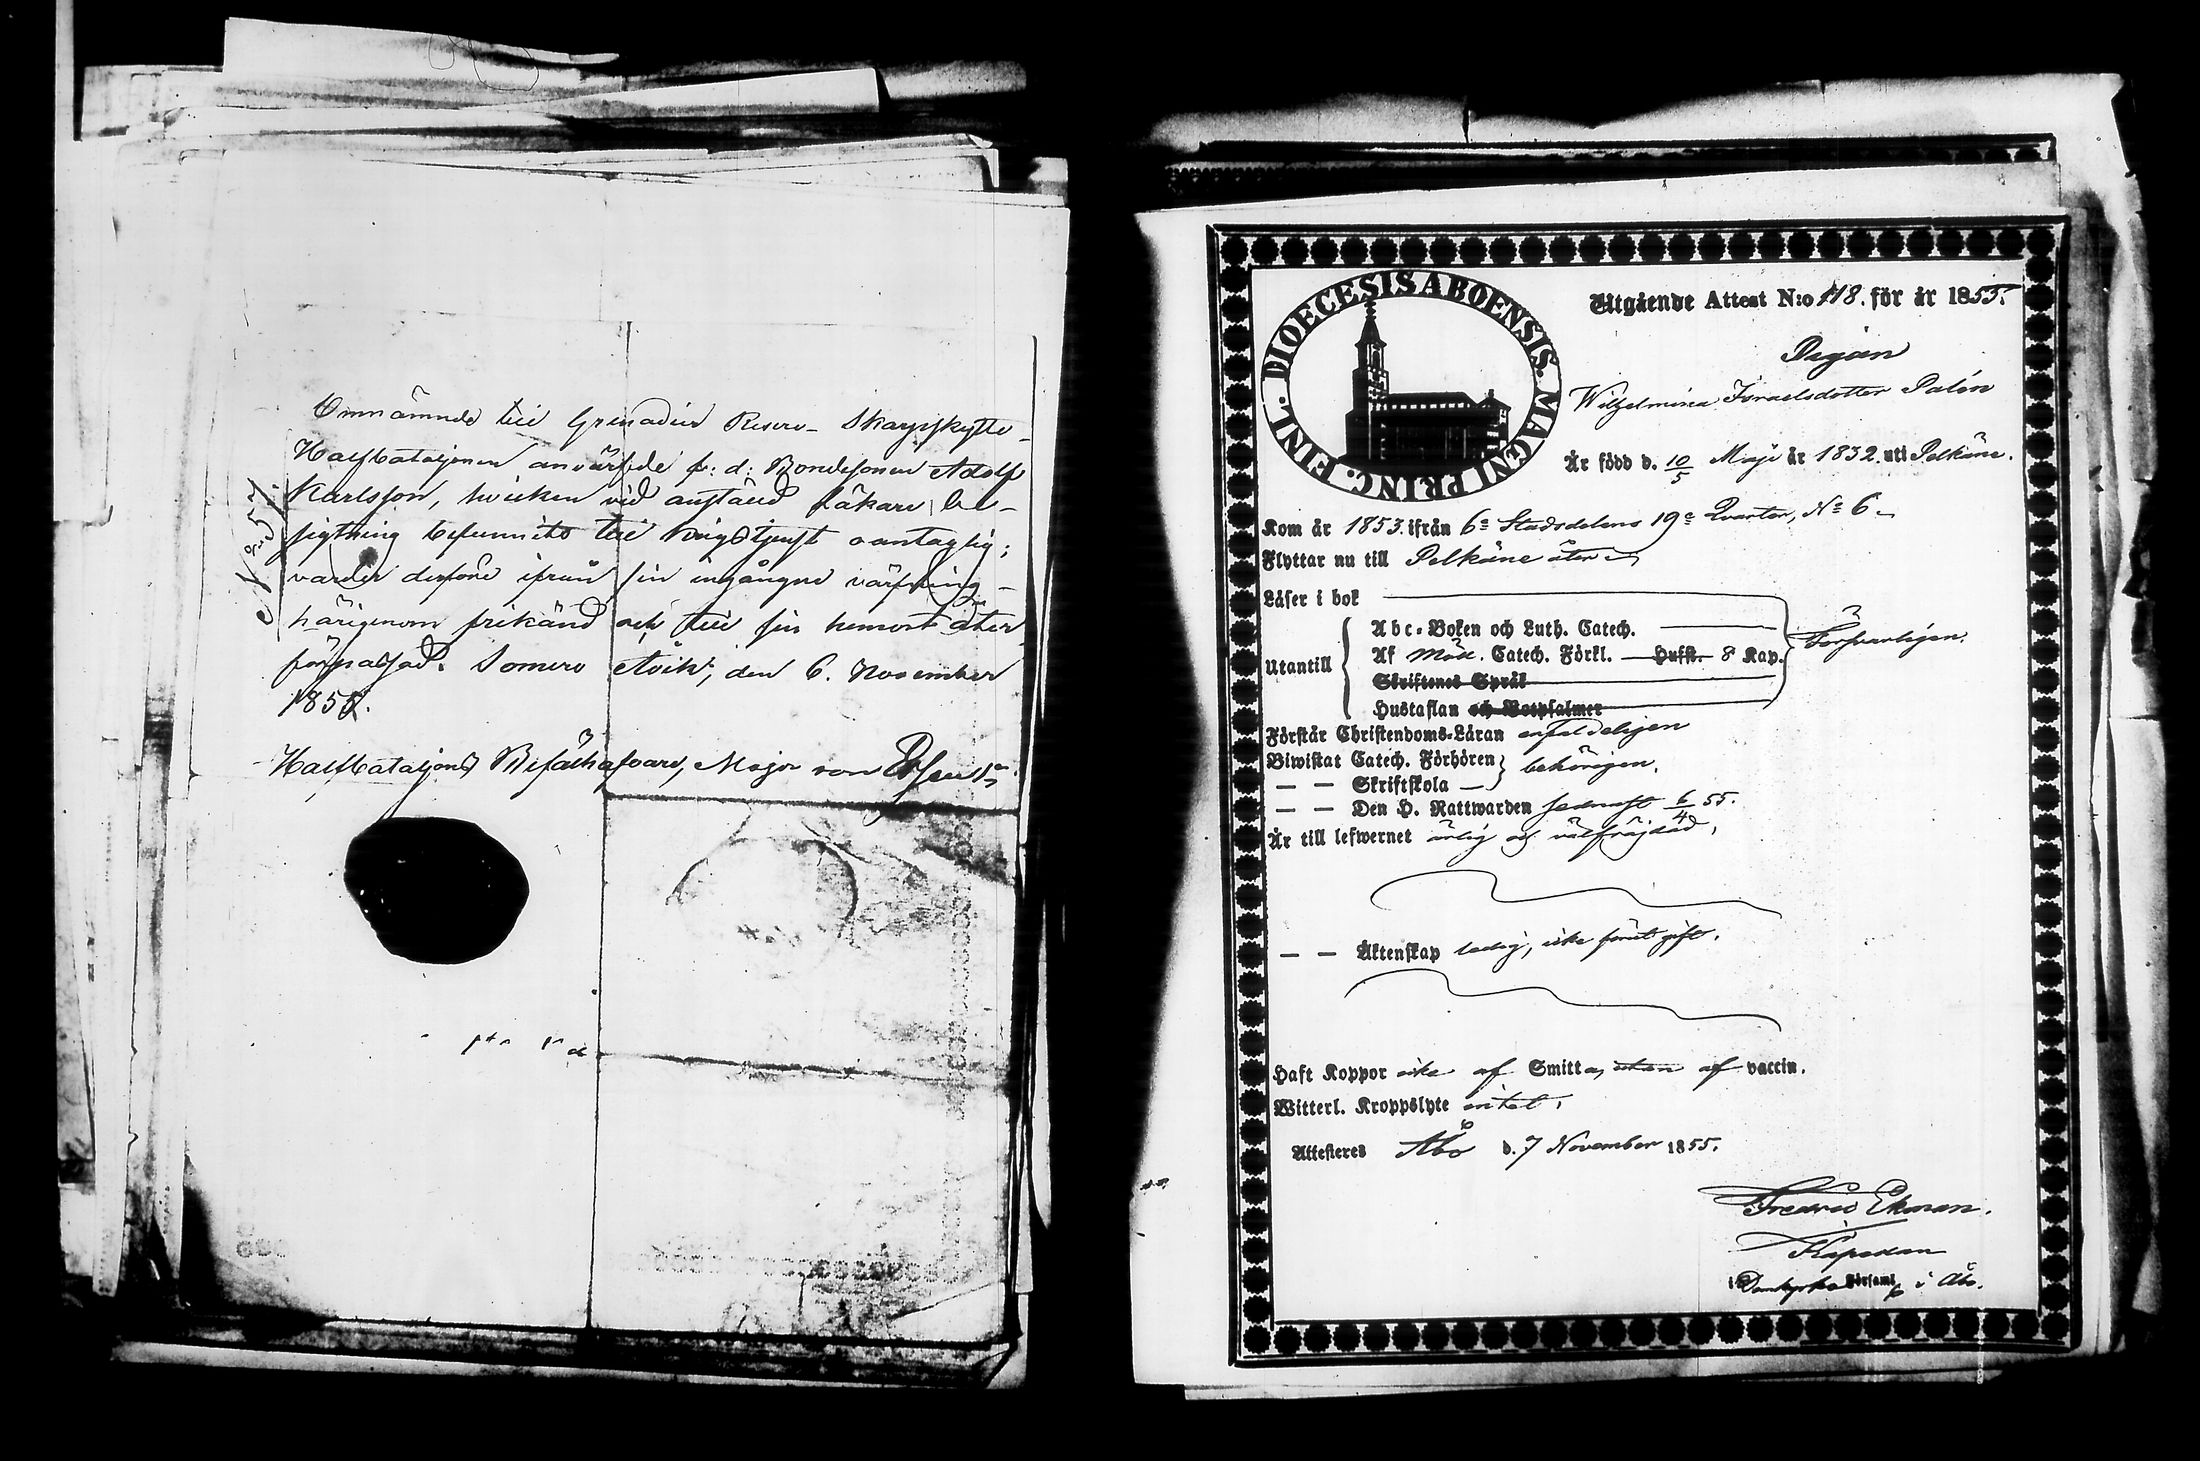 Omnämnde till Grenadier Reserv- Skarpskytte-
Halfbataljonen anvärfde f: d: Bondesonen Adolf
Karlsson, hvilken vid anställd läkare be-
sigtning befunnits till krigstjenst oantaglig;
varder derföre ifrån sin ingångne värfning
härigenom frikänd och till sin hemort åter
förpassad. Somero den 6. November
1855.
Halfbataljons Befälhafvare, Major von
DIOECESIS ABOENSIS. MAGNI PRINC. FINL.
Utgående Attest N:o 118. för år 1855.
Pigan
Wilhelmina Israelsdotter Palén
Är född d. 10/5 Maji år 1832. uti Pelkäne.
Kom år 1853. ifrån 6:e Stadsdelens 19:e Qvarter, No 6
Flyttar nu till Pelkäne åter
Läser i bok
Utantill
Abc-Boken och Luth. Catech.
Af Catech. Förkl. Hufst. 8 Kap.
Försvarligen.
Skriftenes Språk
Hustaflan och Botpsalmer
Förstår Christendoms-Läran enfaldeligen
Biwistat Catech. Förhören behörigen.
— — Skriftskola —
— — Den H. Nattwarden sednast 6/4 55.
Är till lefwernet ärlig och välfräjdad,
— — Äktenskap ledig, icke förut gift.
Haft Koppor icke af Smitta, utan af vaccin.
Witterl. Kroppslyte intet.
Attesteres Åbo d. 7 November 1855.
Fredric Ekman.
Kapellan
i Domkyrko Församl. i Åbo.